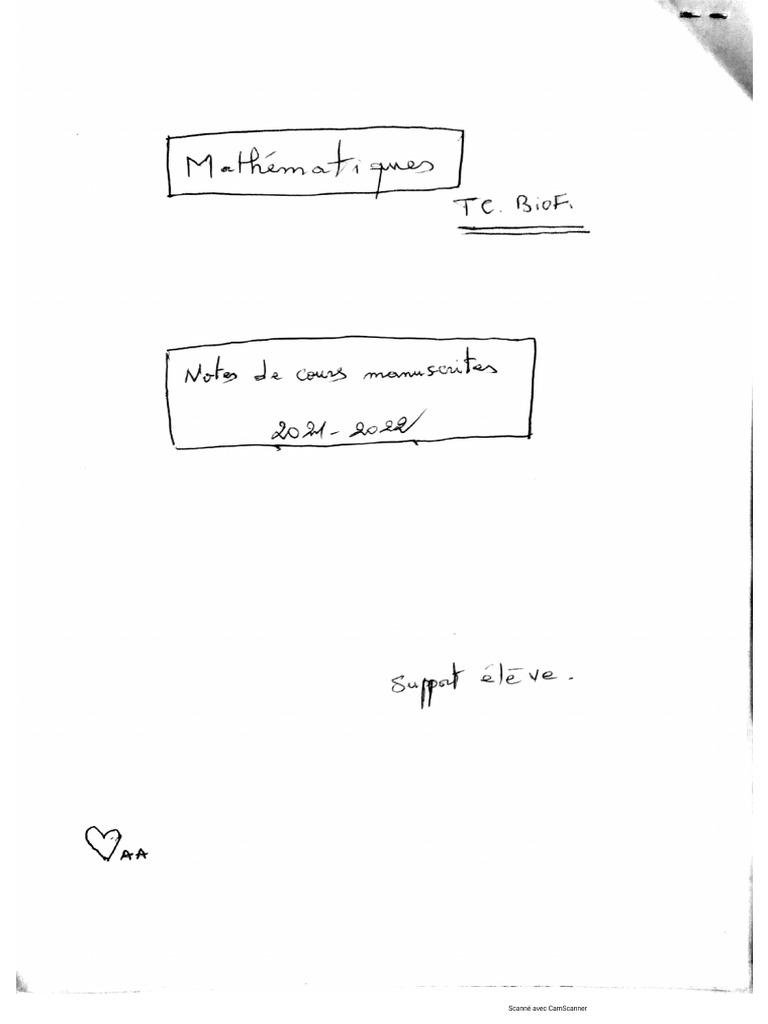 Mathématiques
TC. BioF.
Notes de cours manuscrites
2021-2022
Support élève.
AA
Scanné avec CamScanner